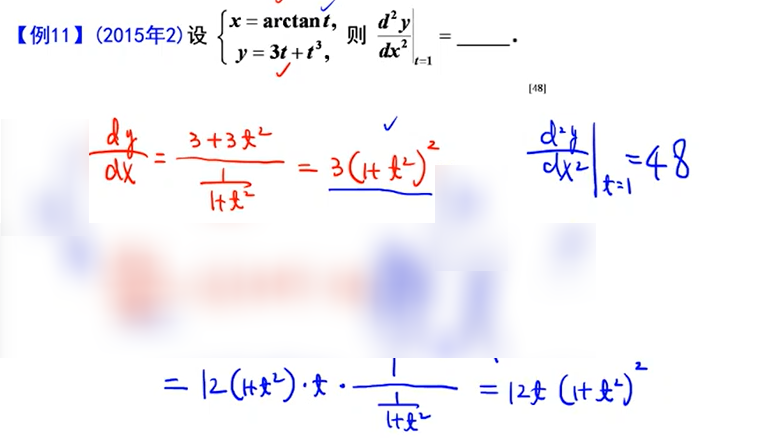 【例11】(2015年2)设 { x = arctan t, y = 3t + t³, 则 d²y/dx² |t=1 = _____.
[48]
dy/dx = (3+3t²)/(1/(1+t²)) = 3(1+t²)²
d²y/dx² |t=1 = 48
= 12(1+t²)·t·1/(1/(1+t²)) = 12t(1+t²)²